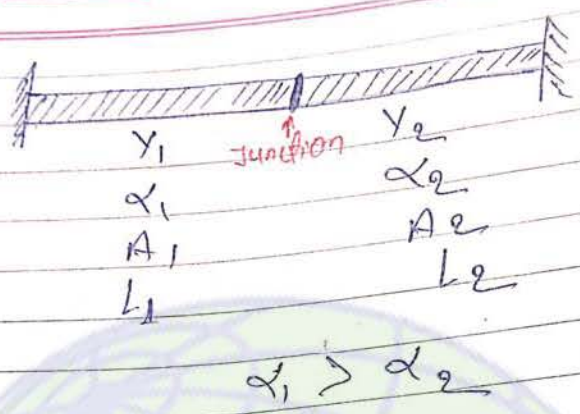 Junction
Y₁ Y₂
α₁ α₂
A₁ A₂
L₁ L₂
α₁ > α₂